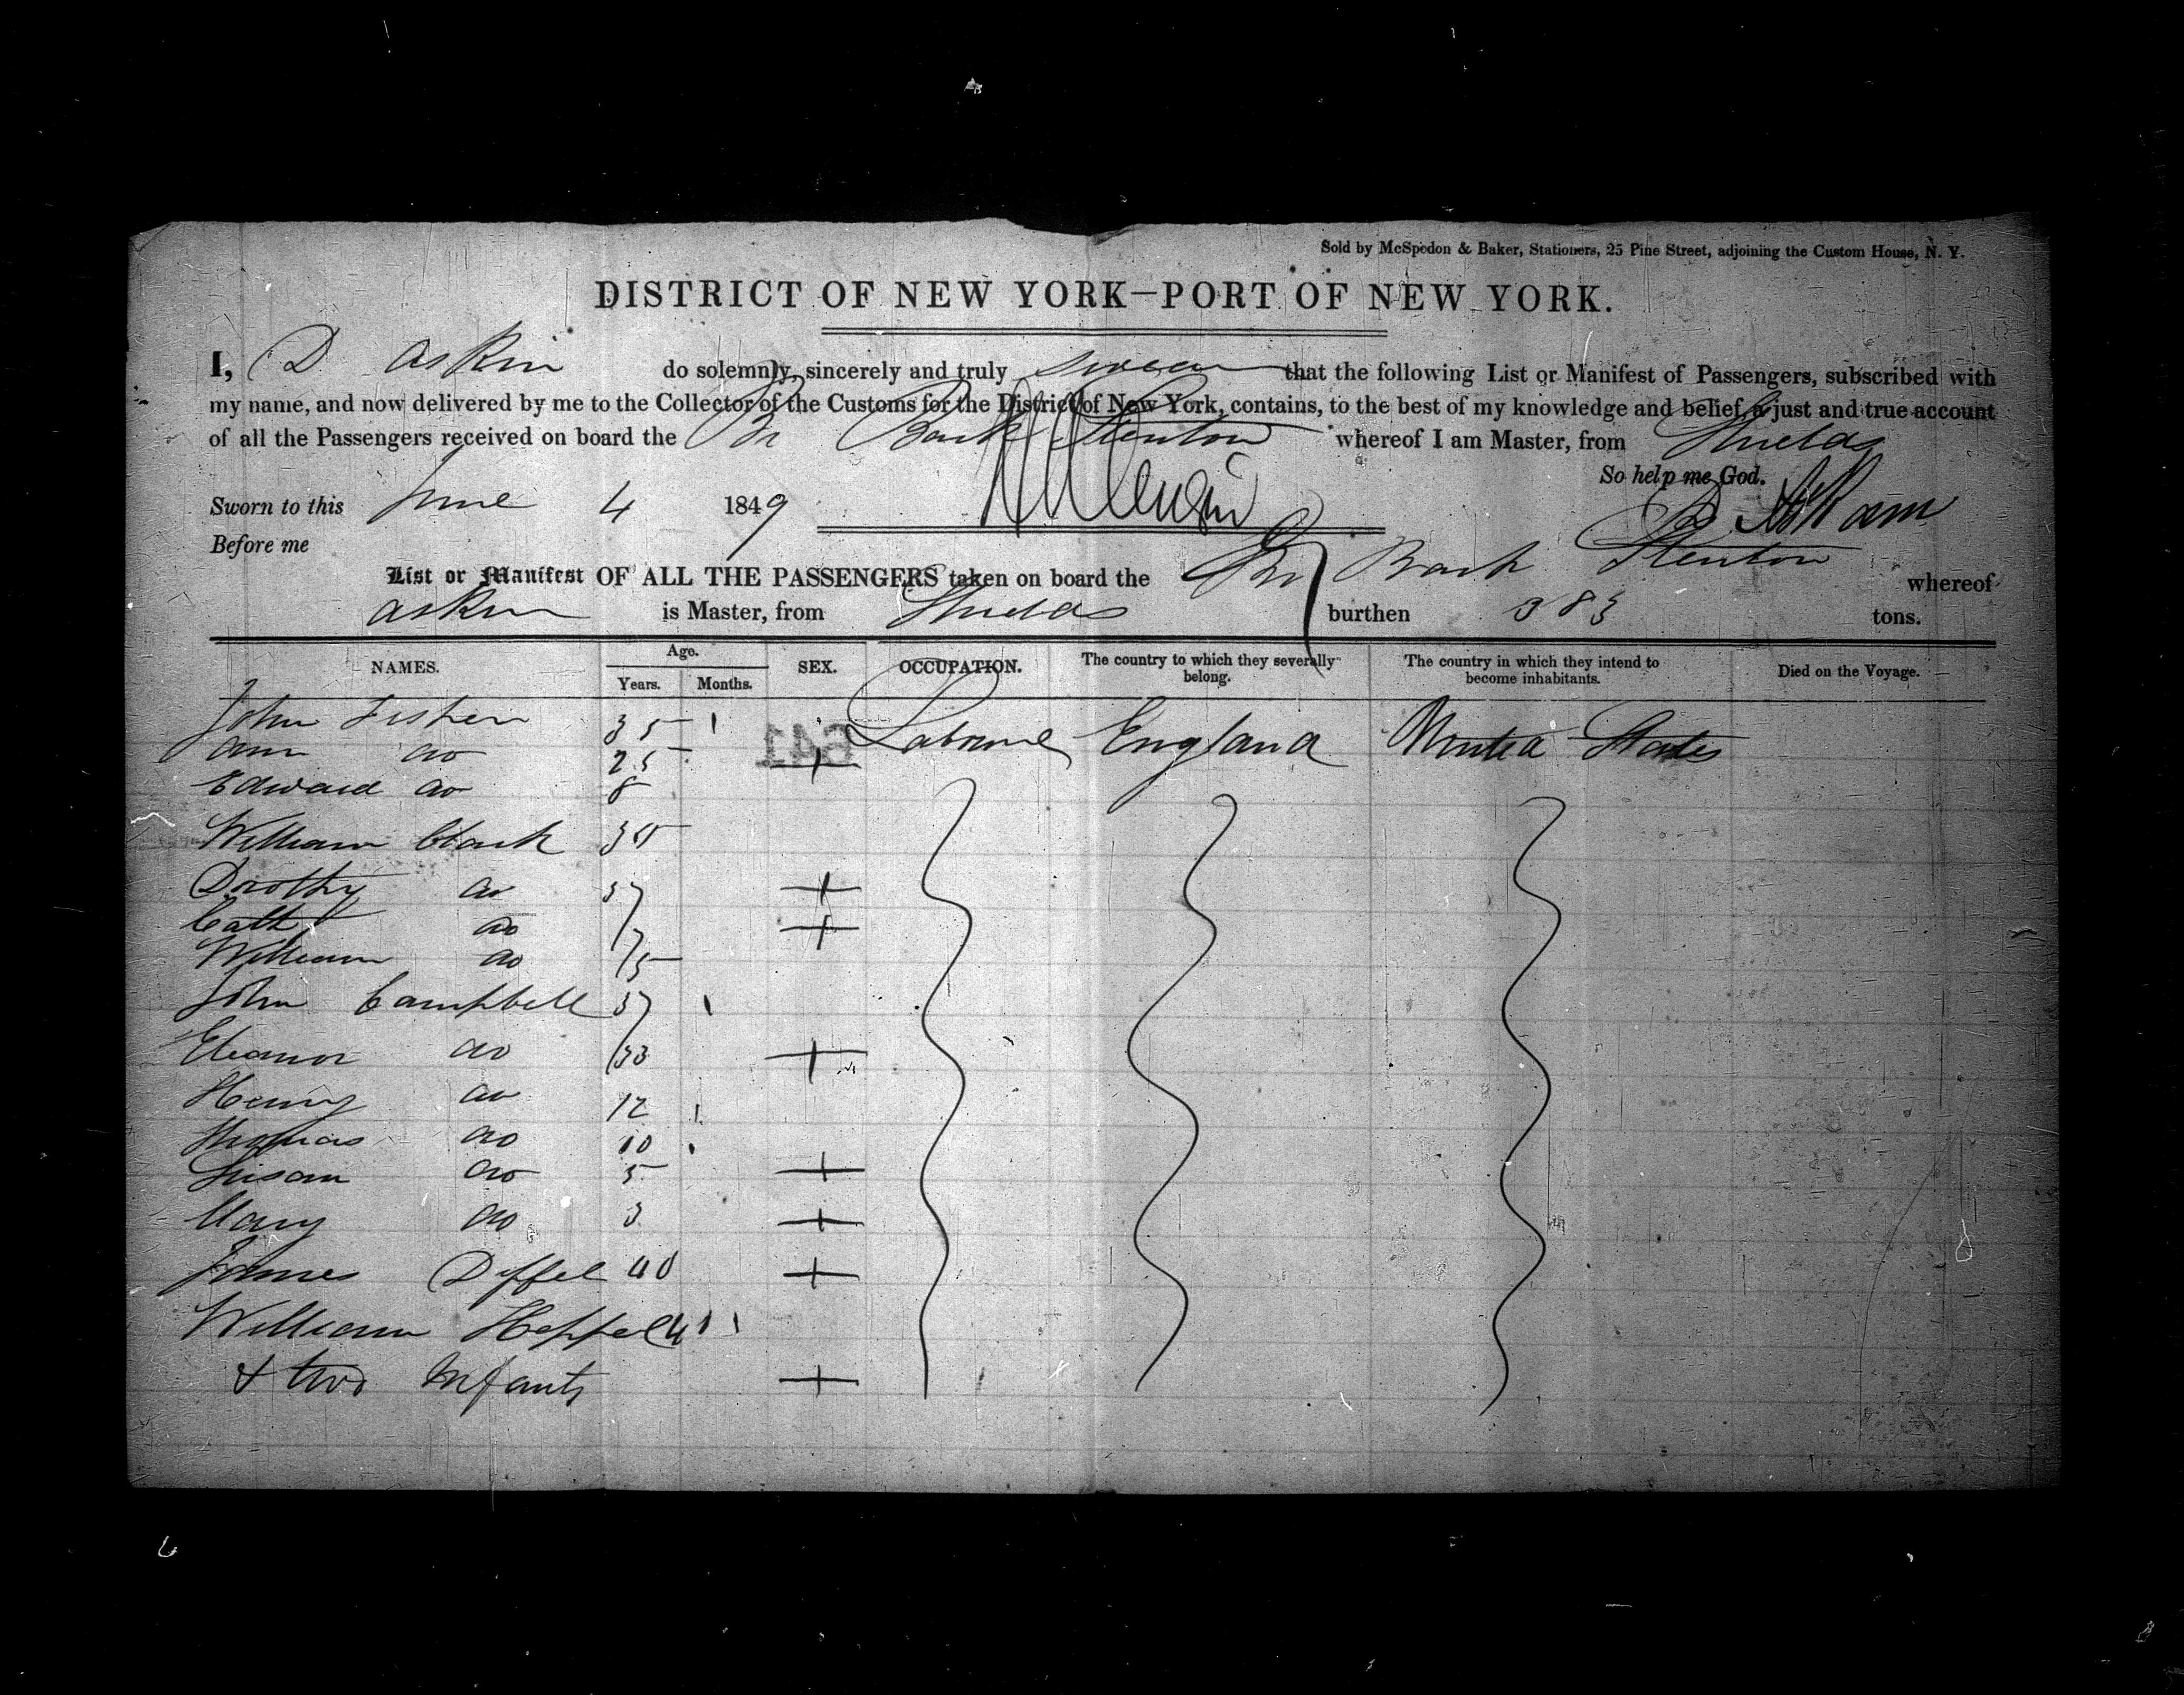 Sold by McSpedon & Baker, Stationers, 25 Pine Street, adjoining the Custom House, N. Y.
DISTRICT OF NEW YORK—PORT OF NEW YORK.
I, D. Askin do solemnly, sincerely and truly swear that the following List or Manifest of Passengers, subscribed with
my name, and now delivered by me to the Collector of the Customs for the District of New York, contains, to the best of my knowledge and belief, a just and true account
of all the Passengers received on board the Br Bark Stenton whereof I am Master, from Shields
So help me God.
Sworn to this June 4 1849
Before me
List or Manifest OF ALL THE PASSENGERS taken on board the Br Bark Stenton whereof
Askin is Master, from Shields burthen 383 tons.
NAMES. Age. Years. Months. SEX. OCCUPATION. The country to which they severally belong. The country in which they intend to become inhabitants. Died on the Voyage.
641
John Fisher 35 Labourer England United States
Ann do 25
Edward do 8
William Clark 35
Drothy do 37
Cath do 7
William do 5
John Campbell 37
Eleanor do 33
Henry do 12
Thomas do 10
Susan do 5
Mary do 3
James Diffel 40
William Heppel 41
& two Infants